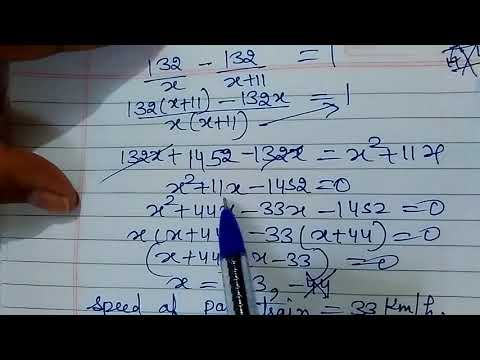 132/x - 132/x+11 = 1
132(x+11) - 132x / x(x+11) = 1
132x + 1452 - 132x = x²+11x
x²+11x - 1452 = 0
x²+44x - 33x - 1452 = 0
x(x+44) - 33(x+44) = 0
(x+44)(x-33) = 0
x = 33, -44
speed of train = 33 km/h.